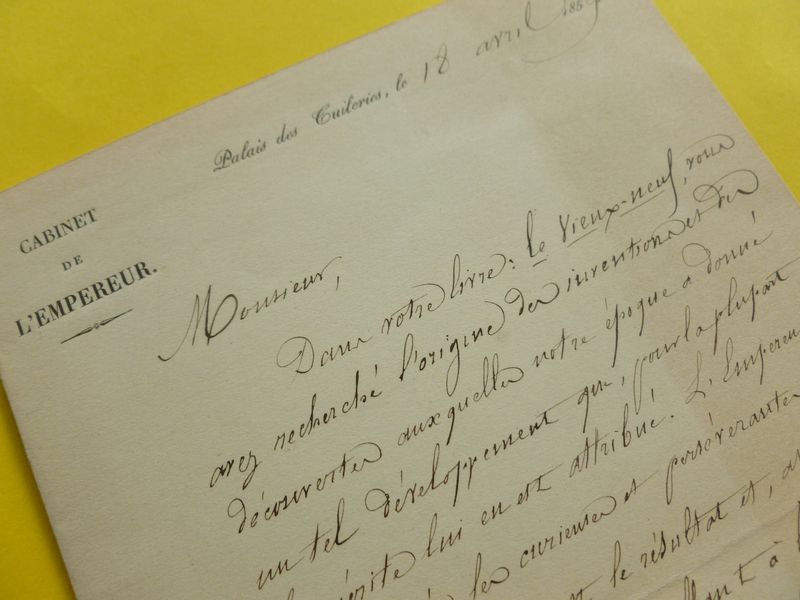 Palais des Tuileries, le 18 avril 185
CABINET
DE
L'EMPEREUR.
Monsieur,
Dans votre livre: le Vieux-neuf, vous
avez recherché l'origine des inventions et des
découvertes auxquelles notre époque a donné
un tel développement que, pour la plupart
lui en est attribué. L'Empereu
les curieuses et persévérantes
le résultat et,
à